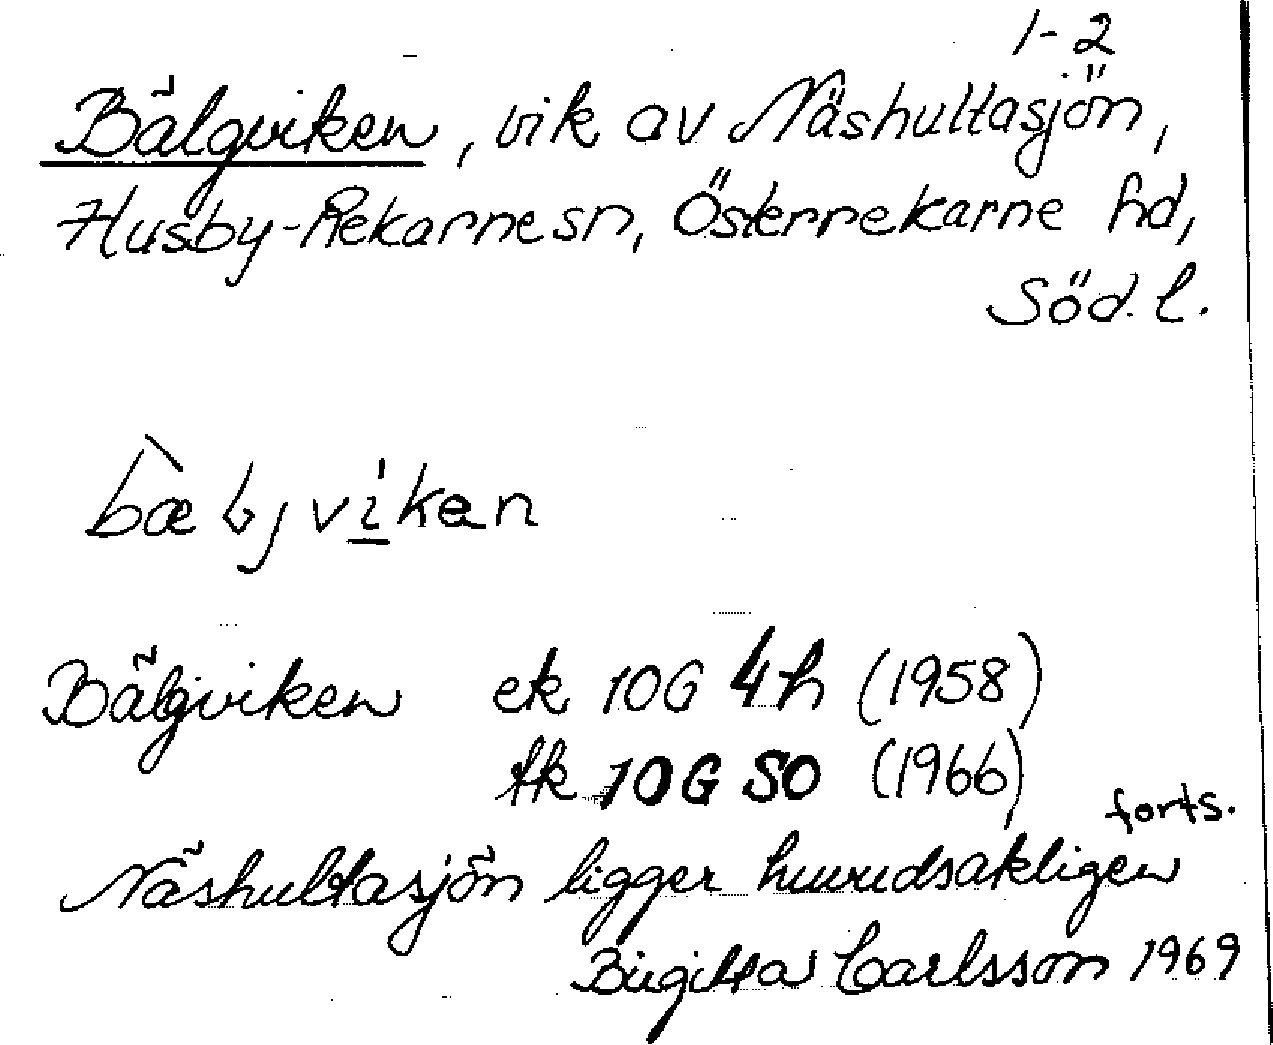 1-2
Bälgviken, vik av Näshultasjön,
Husby-Rekarne sn, Österrekarne hd,
Söd. l.
Bälgviken ek 10G 4h (1958)
tk 10G SO (1966)
forts.
Näshultasjön ligger huvudsakligen
Birgitta Carlsson 1969